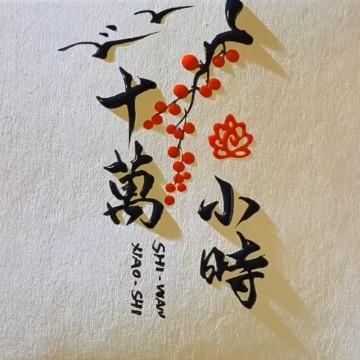 十萬
小時
SHI-WAN
XIAO-SHI